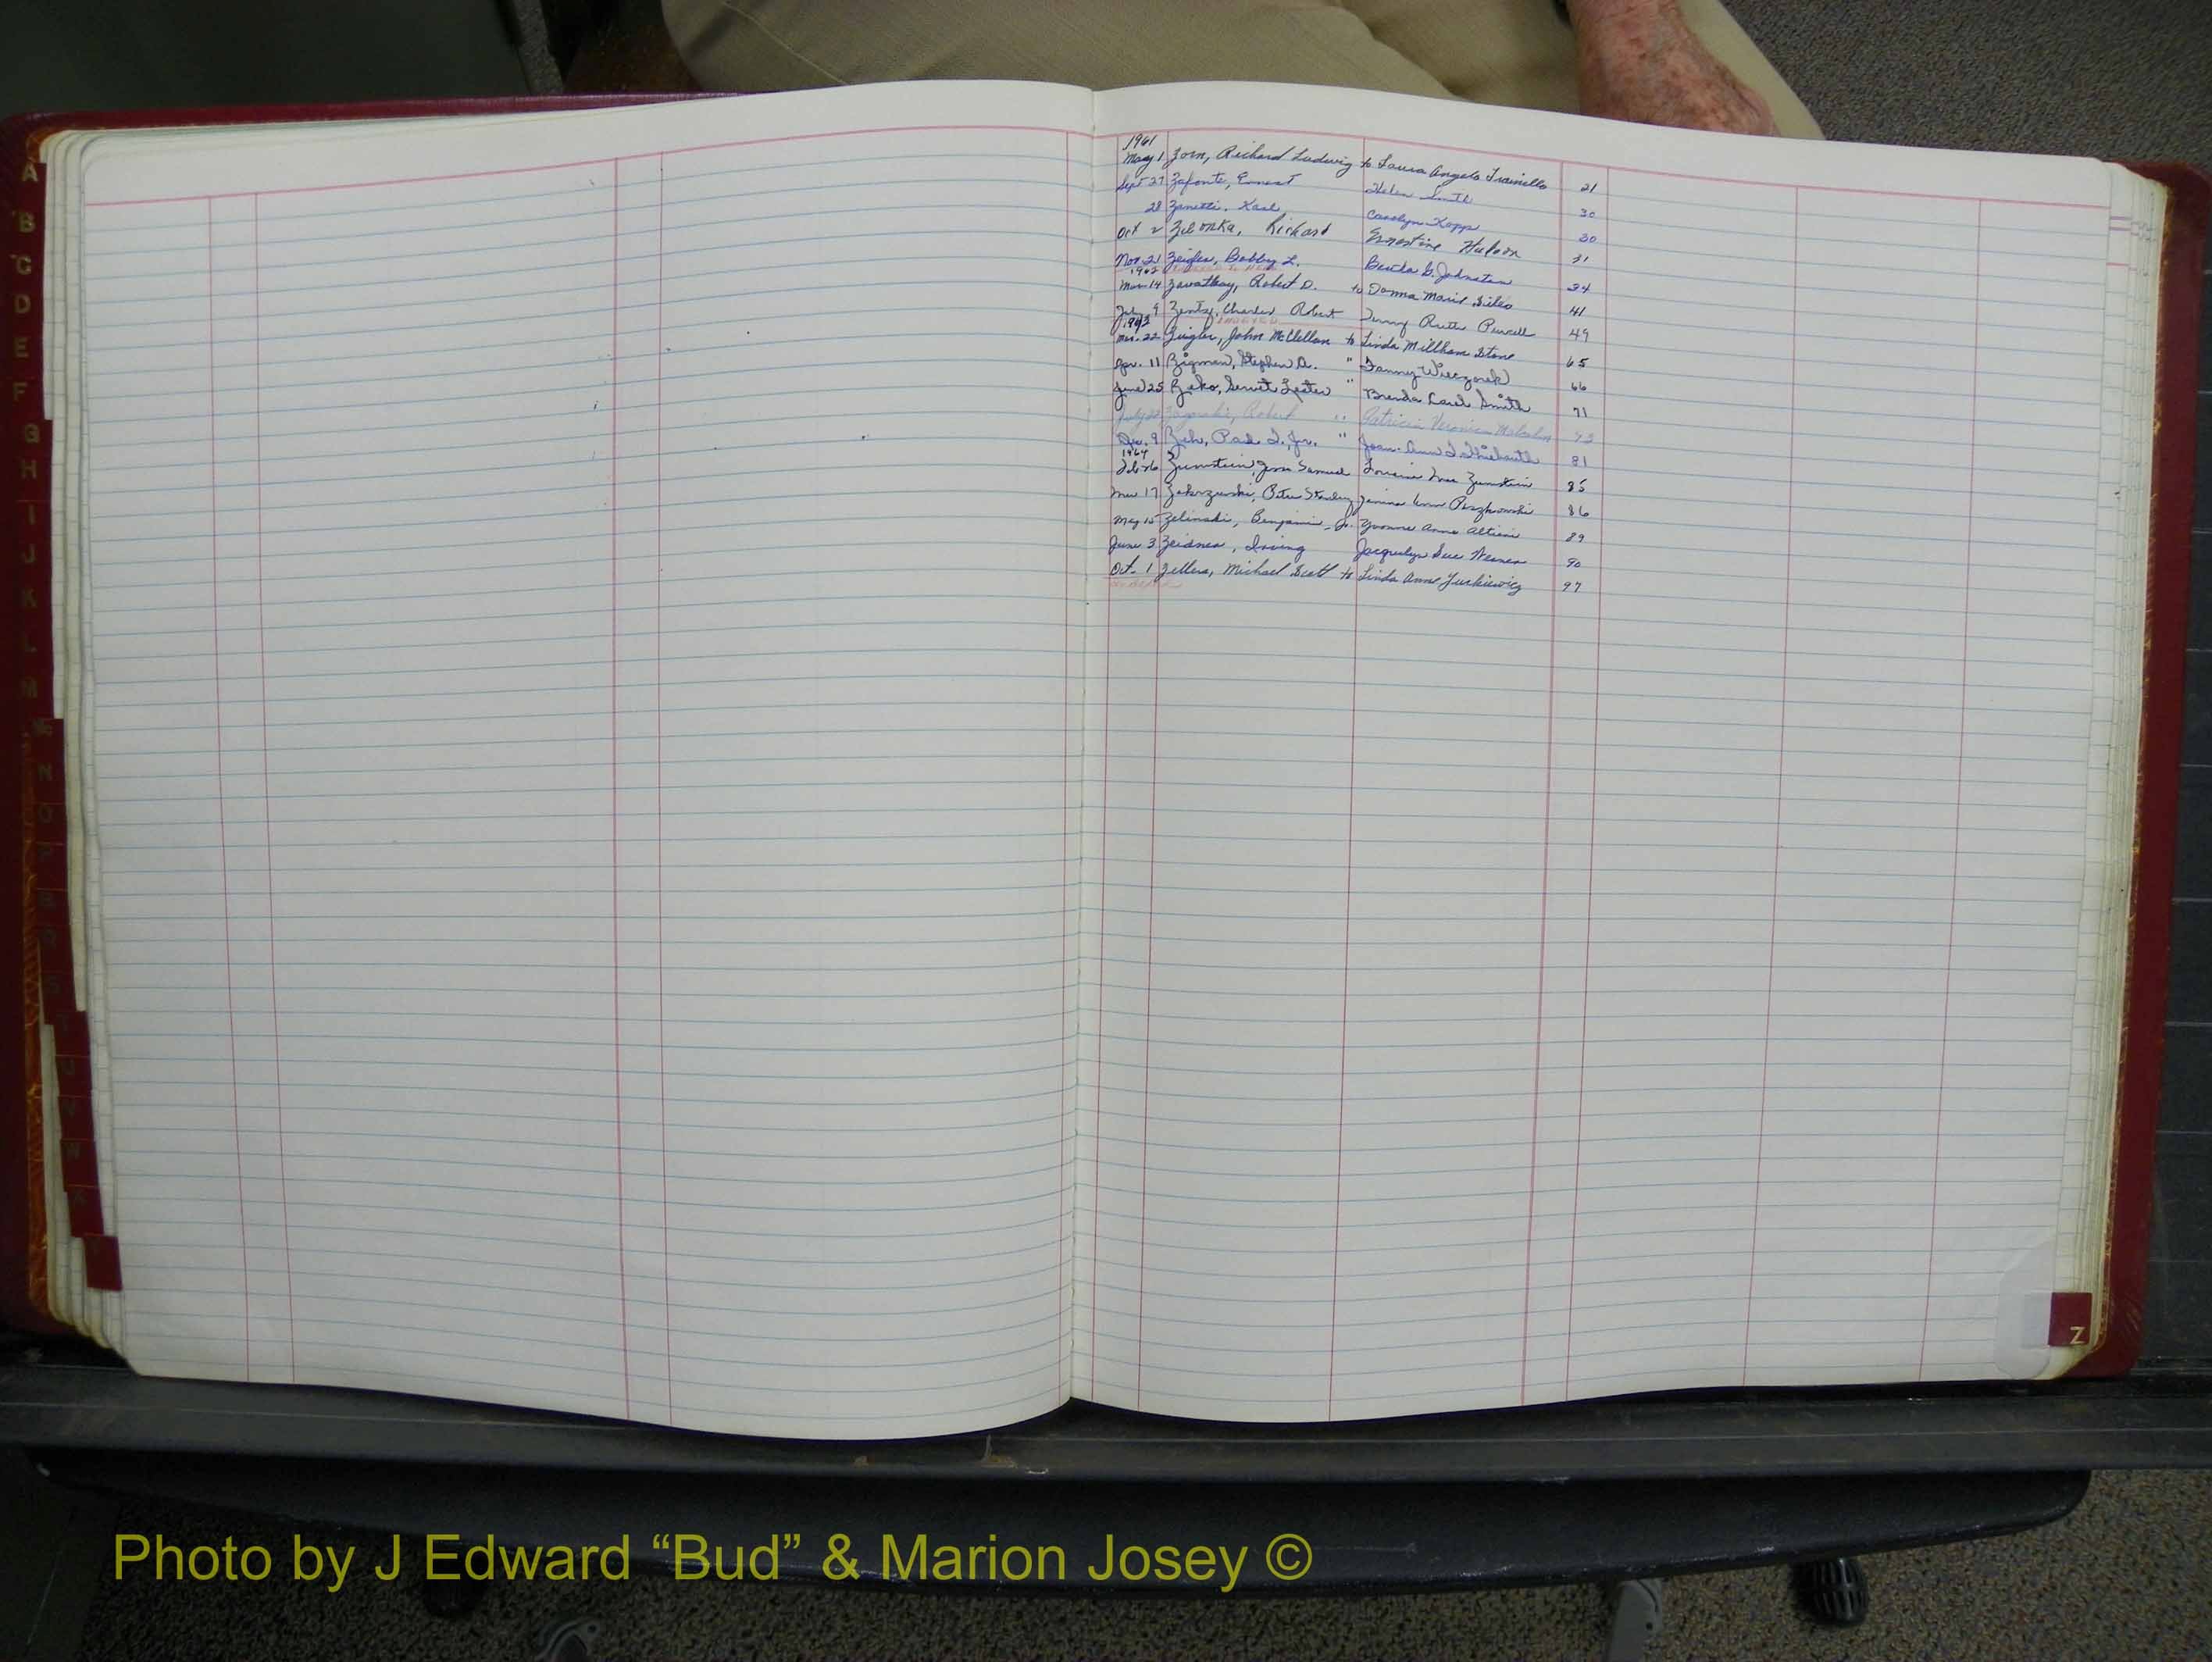 A
B
C
D
E
F
G
H
I
J
K
L
M
Mc
N
O
P
R
S
T
U
V
W
1961
May 1 Zorn, Richard Ludwig to Laura Angela 21
Sept 27 Zafonte, Ernest Helen Smith 30
28 Zanetti, Karl Carolyn Kopp 30
Oct 2 Zelonka, Richard Ernestine Hudson 31
Nov. 21 Zeigler, Bobby L. Bertha G. Johnston 34
1962
Mar. 14 Robert D. to Donna Marie Giles 41
July 9 Zentz, Charles Robert Ruth Purcell 49
1963
Mar. 22 Zeigler, John McClellan to Linda Millham Stone 65
Apr. 11 Zigman, Stephen A. " Fanny Wieczorek 66
June 25 Zeko, Lester " Brenda Carol Smith 71
July 22 Zagorski, Robert " Patricia Veronica Malcolm 73
Dec. 9 Zeh, Paul J., Jr. " Joan Ann 81
1964
Feb 26 Zumstein, Samuel Mae Zumstein 85
Mar 17 Peter Stanley Janina Ann 86
May 15 Zelinski, Benjamin, Jr. Yvonne Anne Altieri 89
June 3 Zeidner, Irving Jacquelyn Sue 90
Oct. 1 Zellers, Michael Scott to Linda Anne Yurkiewicz 97
Z
Photo by J Edward “Bud” & Marion Josey ©